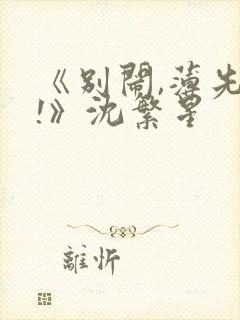 《别鬧,薄先
!》沈繁星
離忻